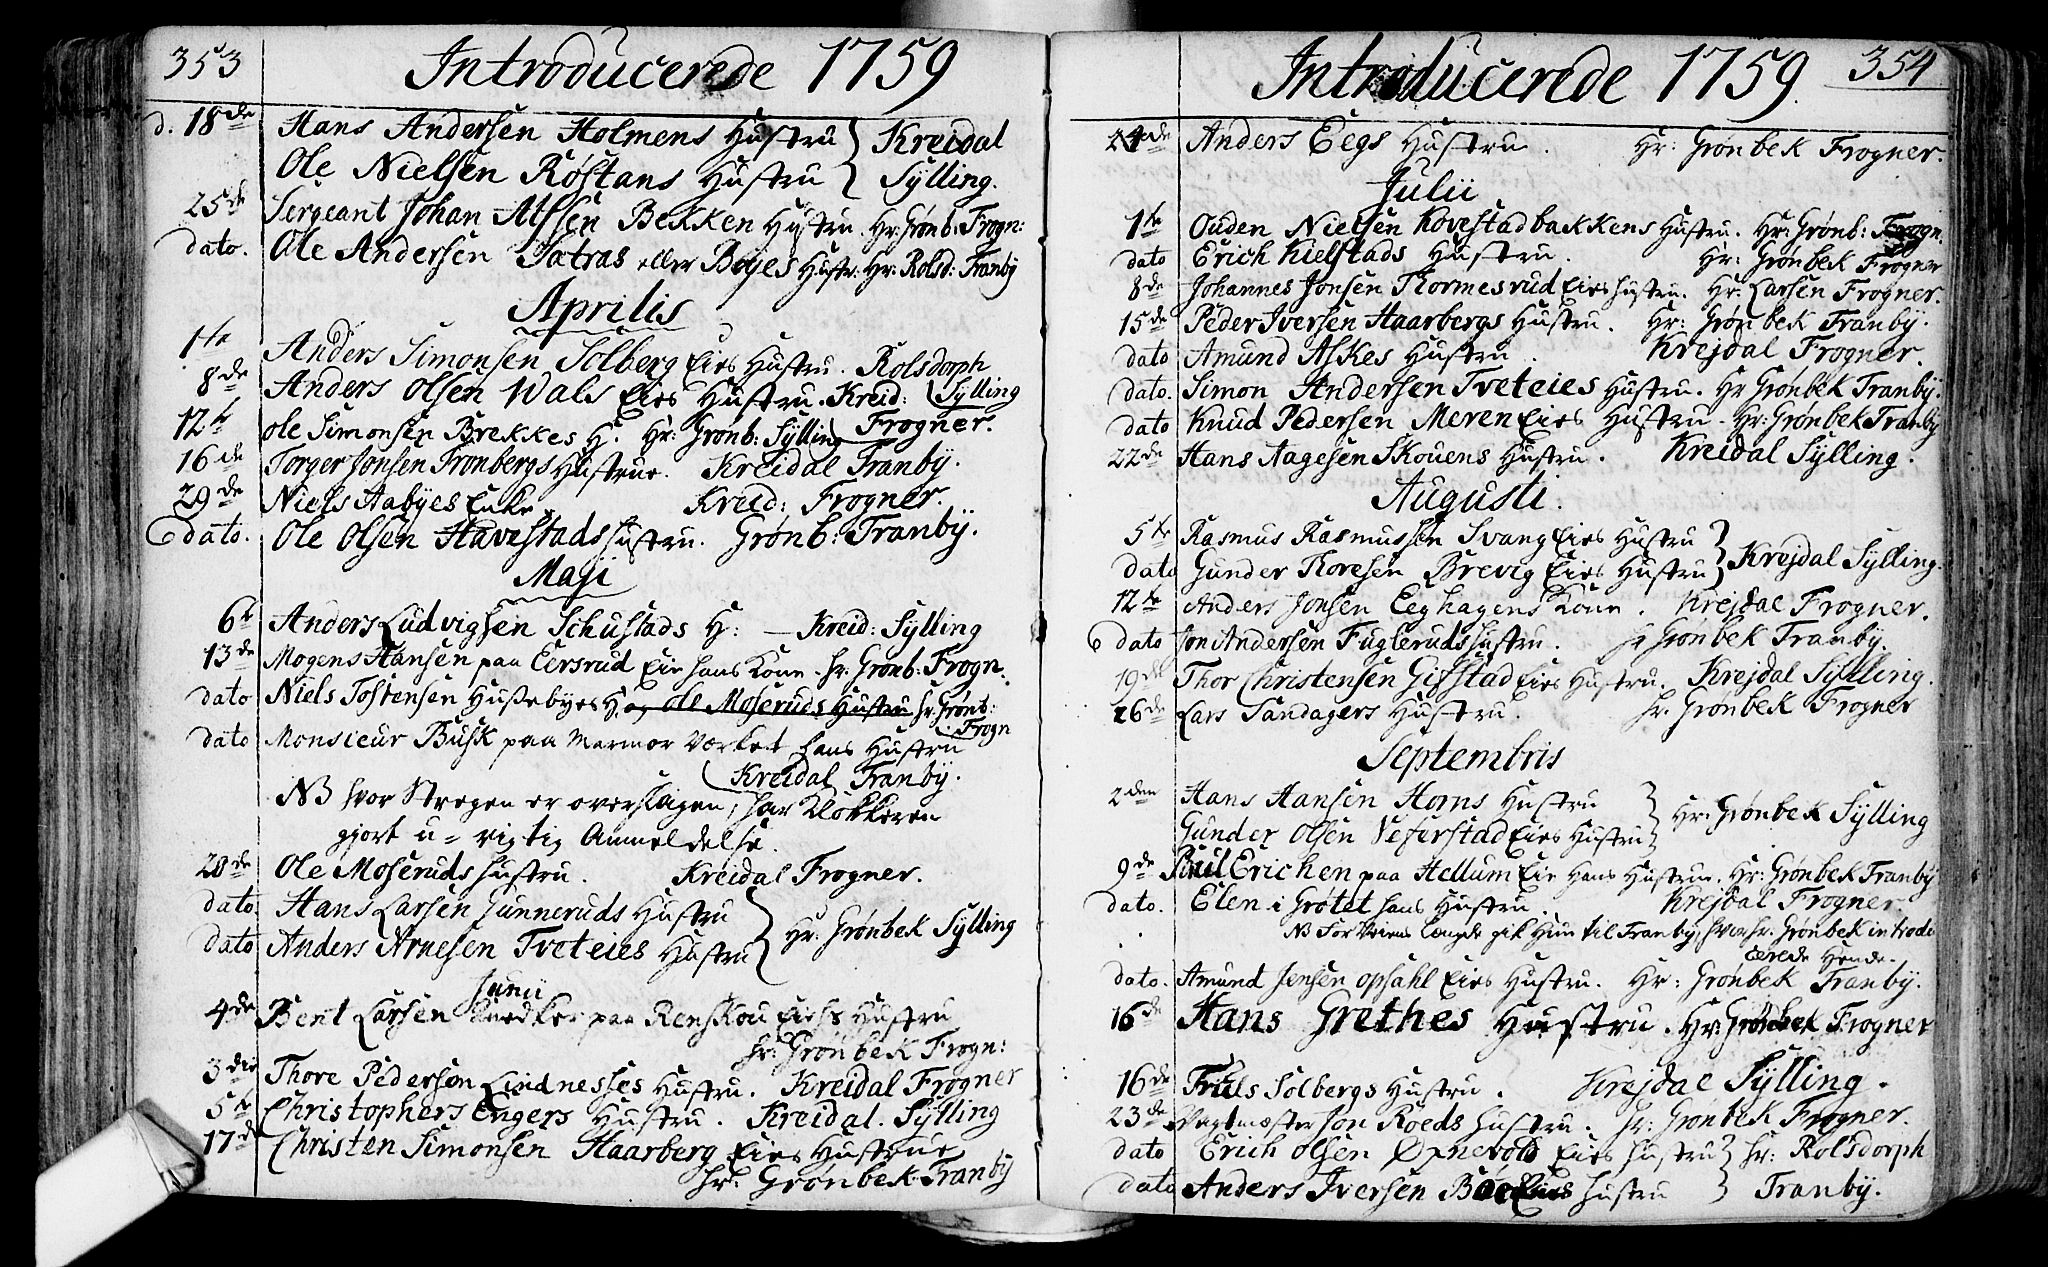 353
Introducerede 1759
d. 18de Hans Andersen Holmens Hustru } Kreidal
Ole Nielsen Røstans Hustru } Sylling.
25de Sergeant Johan Alfsen Bekken Hustru. Hr: Grønb: Frogn:
dato. Ole Andersen Satras eller Böyes Hustr: Hr: Rolsd: Tranby
Aprilis
1te Anders Simonsen Solberg Eies Hustru. Rolsdorph
8de Anders Olsen Wals Eies Hustru. Kreid: Sylling
12te Ole Simonsen Brekkes H. Hr: Grønb: Sylling Frogner.
16de Torger Jonsen Tronbergs Hustrue. Kreidal Tranbÿ.
29de Niels Aabÿes Enke. Kreid: Frogner.
dato. Ole Olsen Havestads Hustru. Grønb: Tranbÿ.
Maji
6te Anders Ludvigsen Schustads H: — Kreid: Sylling
13de Mogens Hansen paa Eersrud Eie hans Kone. Hr. Grønb: Frogn.
dato Niels Tostensen Hussebyes H. og Ole Moseruds Hustru Hr. Grønb:
Frogn
dato Monsieur Busk paa Marmor Værket hans Hustru
Kreidal Tranbÿ.
NB hvor Stregen er overslagen, har Klokkeren
gjort u=rigtig Anmeldelse.
20de Ole Moseruds Hustru. Kreidal Frogner.
dato. Hans Larsen Gunneruds Hustru
dato Anders Arnesen Tveteies Hustru } Hr: Grønbek Sylling
Junii
4de Bent Larsen Snedker paa Renskou Eies Hustru
Hr: Grønbek Frogn:
3die Thore Pedersen Lindnesses Hustru. Kreidal Frogner
5te Christophers Engers Hustru. Kreidal. Sylling
17de Christen Simonsen Haarberg Eies Hustrue
Hr. Grønbek Tranbÿ
Introducerede 1759. 354
24de Anders Eegs Hustru. Hr: Grønbek Frogner.
Julii
1te Ouden Nielsen Kovestadbakkens Hustru. Hr: Grønb: Frogn.
dato Erich Kielstads Hustru. Hr: Grønbek Frogner
8de Johannes Jonsen Thormesrud Eies Hustru. Hr. Larsen Frogner.
15de Peder Iversen Haarbergs Hustru. Hr: Grønbek Tranbÿ.
dato Amund Askes Hustru. Krejdal Frogner.
dato. Simon Andersen Tveteies Hustru. Hr Grønbek Tranbÿ.
dato Knud Pedersen Meren Eies Hustru. Hr: Grønbek Tranbÿ
22de Hans Aagesen Skouens Hustru. Kreidal Sylling.
Augusti.
5te Rasmus Rasmussen Svang Eies Hustru
dato Gunder Thoresen Brevig Eies Hustru } Krejdal Sylling.
12te Anders Jonsen Eeghagens Kone. Krejdal Frogner.
dato Jon Andersen Fugleruds Hustru. Hr Grønbek Tranbÿ.
19de Thor Christensen Gifstad Eies Hustru. Krejdal Sylling.
26de Lars Sandagers Hustru. Hr. Grønbek Frogner
Septembris
2den Hans Hansen Horns Hustru
Gunder Olsen Veferstad Eies Hustru } Hr: Grønbek Sylling
9de Poul Erichen paa Hellum Eie hans Hustrue. Hr: Grønbek Tranbÿ
dato. Elen i Grøtet hans Hustru. Krejdal Frogner.
NB For Veiens Længde gik Hun til Tranby, hvor Hr. Grønbek introdu
cerede Hende.
dato. Amund Jensen Opsahl Eies Hustru. Hr: Grønbek Tranbÿ.
16de Hans Grethes Hustru. Hr: Grønbek Frogner
16de Truls Solbergs Hustru. Krejdal Sylling.
23de Vagtmæster Jon Roeds Hustru. Hr: Grønbek Frogner.
dato Erich Olsen Øxnevold Eies Hustru } Hr: Rolsdorph
dato Anders Iversen Böe Eies Hustru } Tranbÿ.